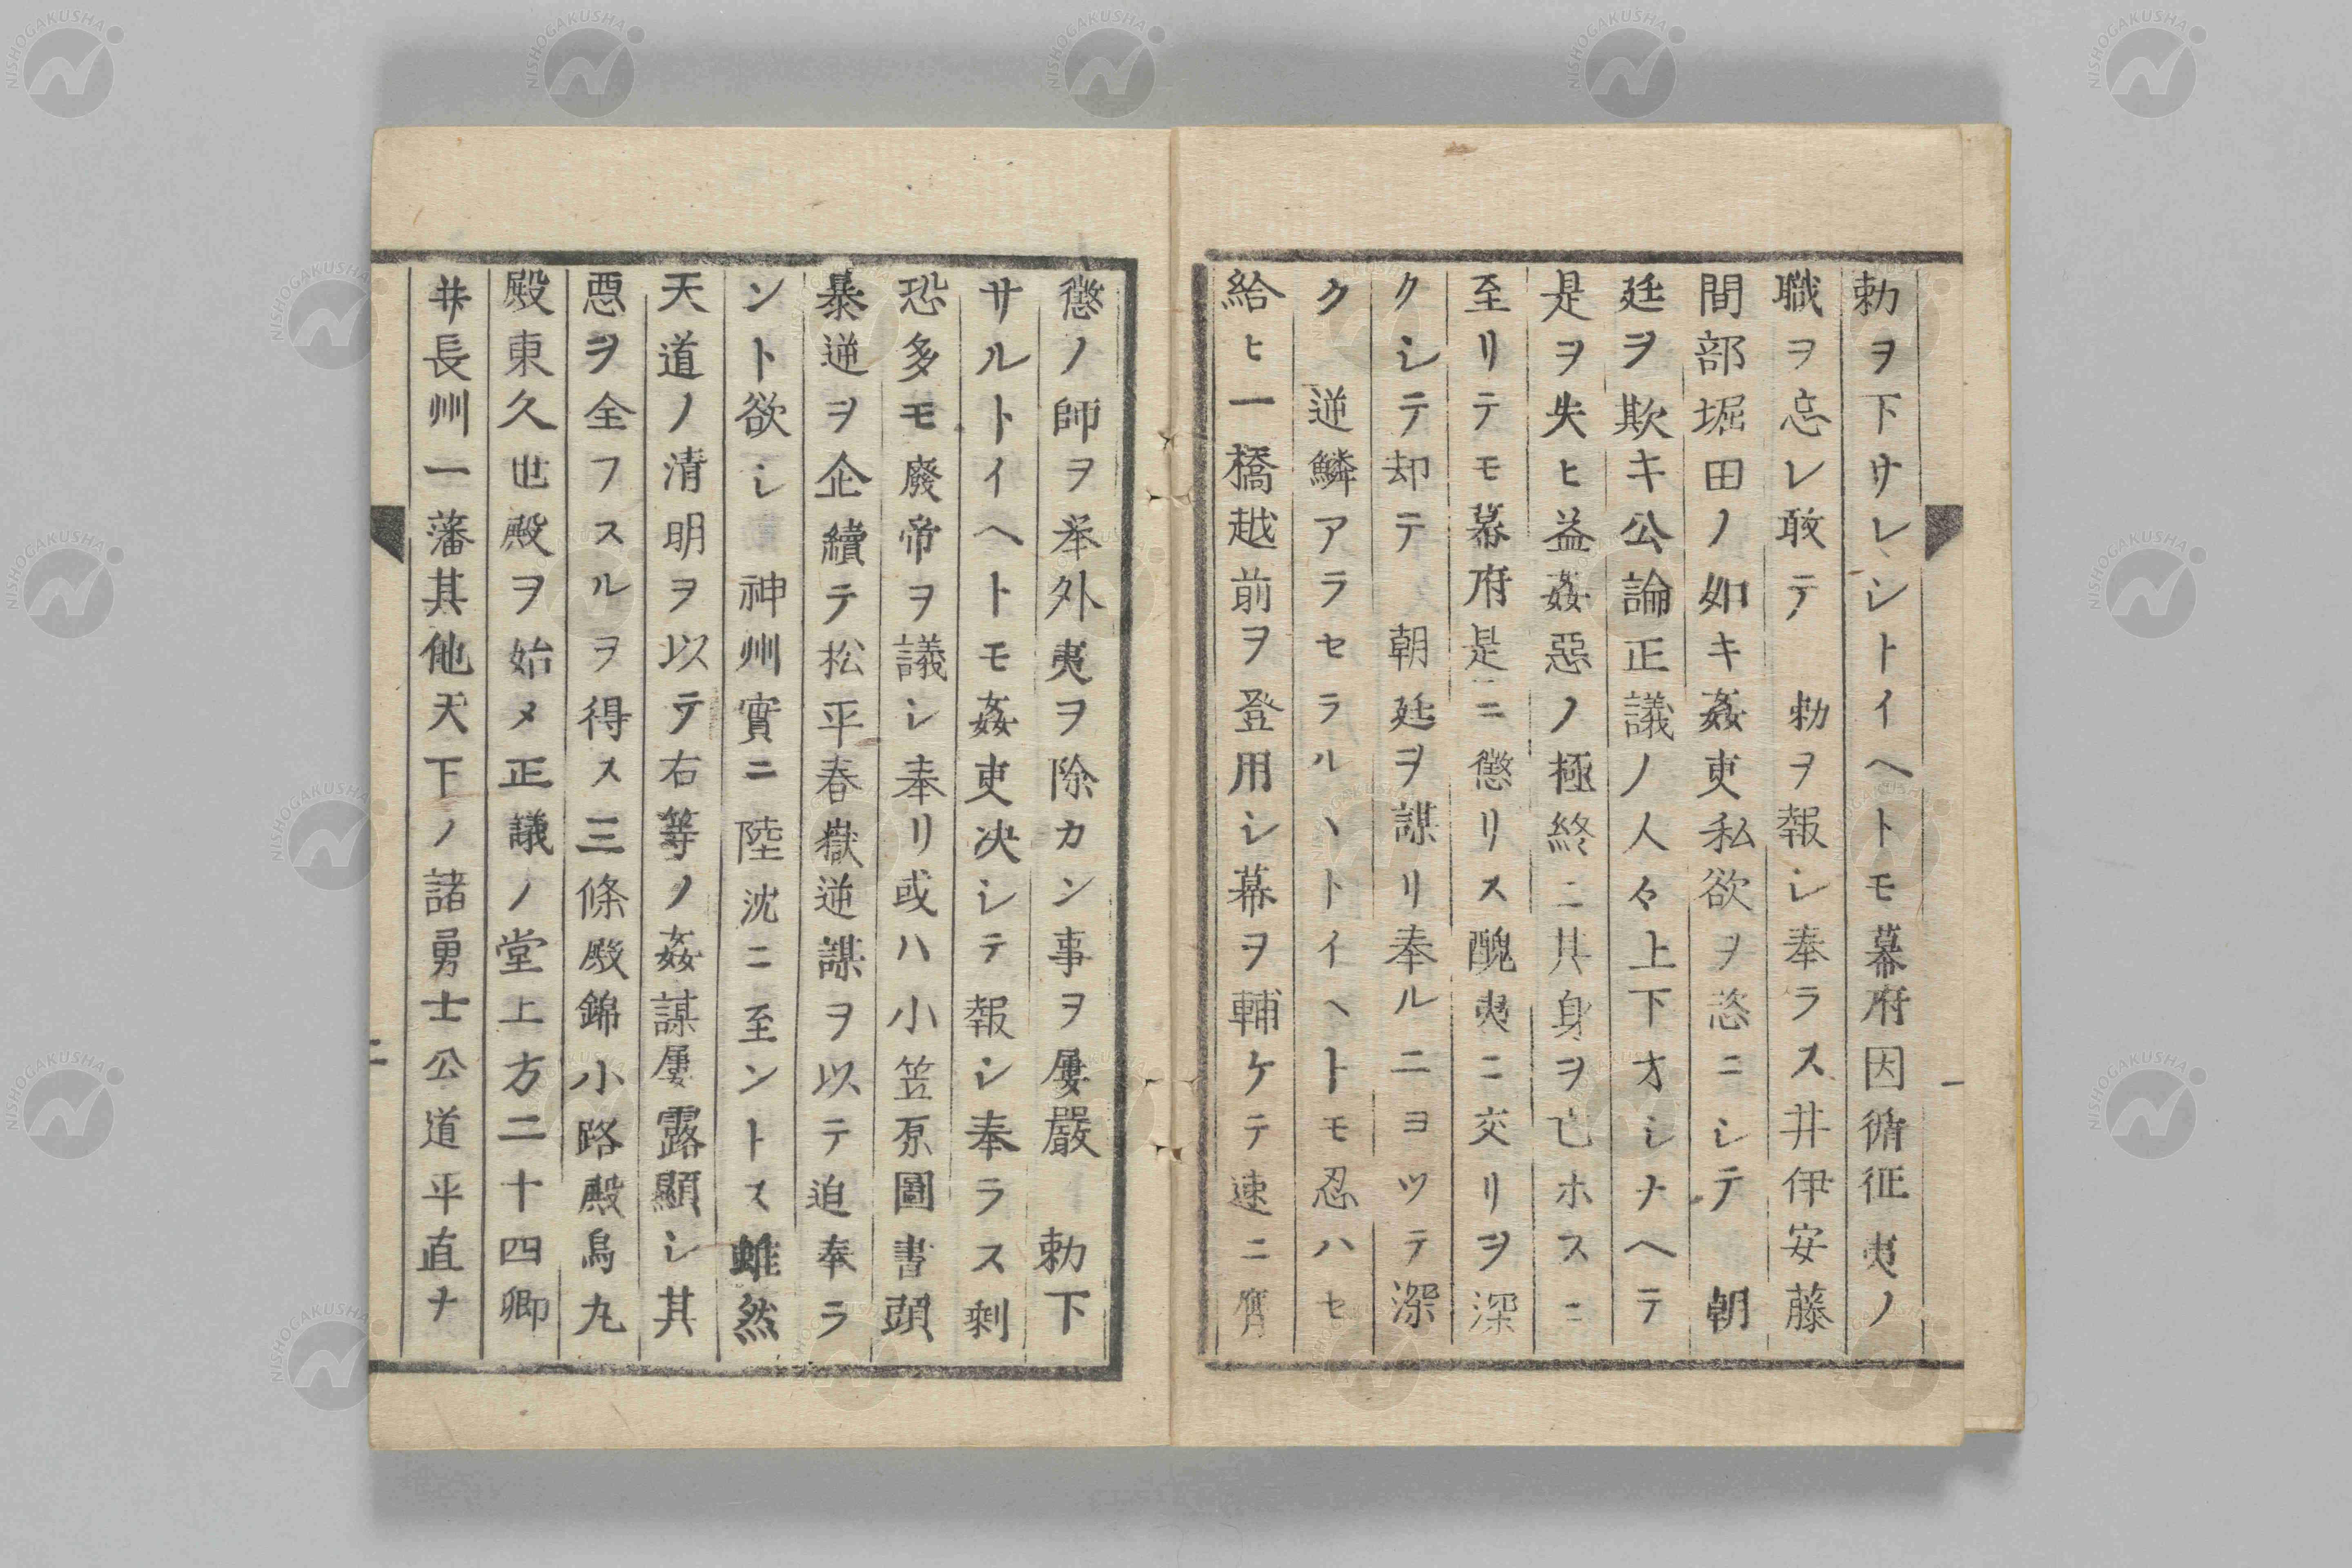 勅ヲ下サレシトイヘトモ幕府因循征夷ノ
職ヲ忘レ敢テ　勅ヲ報シ奉ラス井伊安藤
間部堀田ノ如キ姦吏私欲ヲ恣ニシテ　朝
廷ヲ欺キ公論正議ノ人々上下オシナヘテ
是ヲ失ヒ益姦惡ノ極終ニ其身ヲ亡ホスニ
至リテモ幕府是ニ懲リス醜夷ニ交リヲ深
クシテ却テ　朝廷ヲ謀リ奉ルニヨツテ深
ク　逆鱗アラセラルヽトイヘトモ忍ハセ
給ヒ一橋越前ヲ登用シ幕ヲ輔ケテ速ニ膺
懲ノ師ヲ举外夷ヲ除カン事ヲ屢嚴　勅下
サルトイヘトモ姦吏决シテ報シ奉ラス剩
恐多モ廢帝ヲ議シ奉リ或ハ小笠原圖書頭
暴逆ヲ企續テ松平春嶽逆謀ヲ以テ迫奉ラ
ント欲シ　神州實ニ陸沈ニ至ントス雖然
天道ノ清明ヲ以テ右等ノ姦謀屢露顯シ其
悪ヲ全フスルヲ得ス三條殿錦小路殿烏丸
殿東久世殿ヲ始メ正議ノ堂上方二十四卿
并長州一藩其他天下ノ諸勇士公道平直ナ
一
二
NISHOGAKUSHA